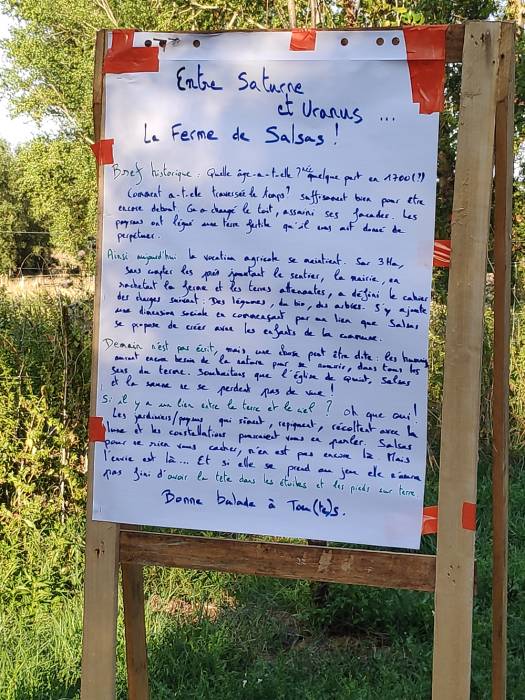 Entre Saturne
et Uranus ...
La Ferme de Salsas !
Bref historique : Quelle âge-a-t-elle ? Née quelque part en 1700 (?)
Comment a-t-elle traversée le temps ? Suffisament bien pour être
encore debout. On a changé le toit, assaini ses façades. Les
paysans ont légué une terre fertile qu'il nous est donné de
perpétuer.
Ainsi aujourd'hui la vocation agricole se maintient. Sur 3 Ha,
sans compter les prés jouxtant le sentier, la mairie, en
rachetant la ferme et les terres attenantes, a défini le cahier
des charges suivant : Des légumes, du bio, des arbres. S'y ajoute
une dimension sociale en commençant par un lien que Salsas
se propose de créer avec les enfants de la commune.
Demain n'est pas écrit, mais une chose peut être dite : les humains
auront encore besoin de la nature pour se nourrir, dans tous les
sens du terme. Souhaitons que l'église de Quint, Salsas
et la sausse ne se perdent pas de vue !
Si il y a un lien entre la terre et le ciel ? Oh que oui !
Les jardiniers/paysans, qui sèment, repiquent, récoltent avec la
lune et les constellations pourraient vous en parler. Salsas
pour ne rien vous cacher, n'en est pas encore là. Mais
l'envie est là... Et si elle se prend au jeu elle n'aura
pas fini d'avoir la tête dans les étoiles et les pieds sur terre
Bonne balade à Tou(te)s.